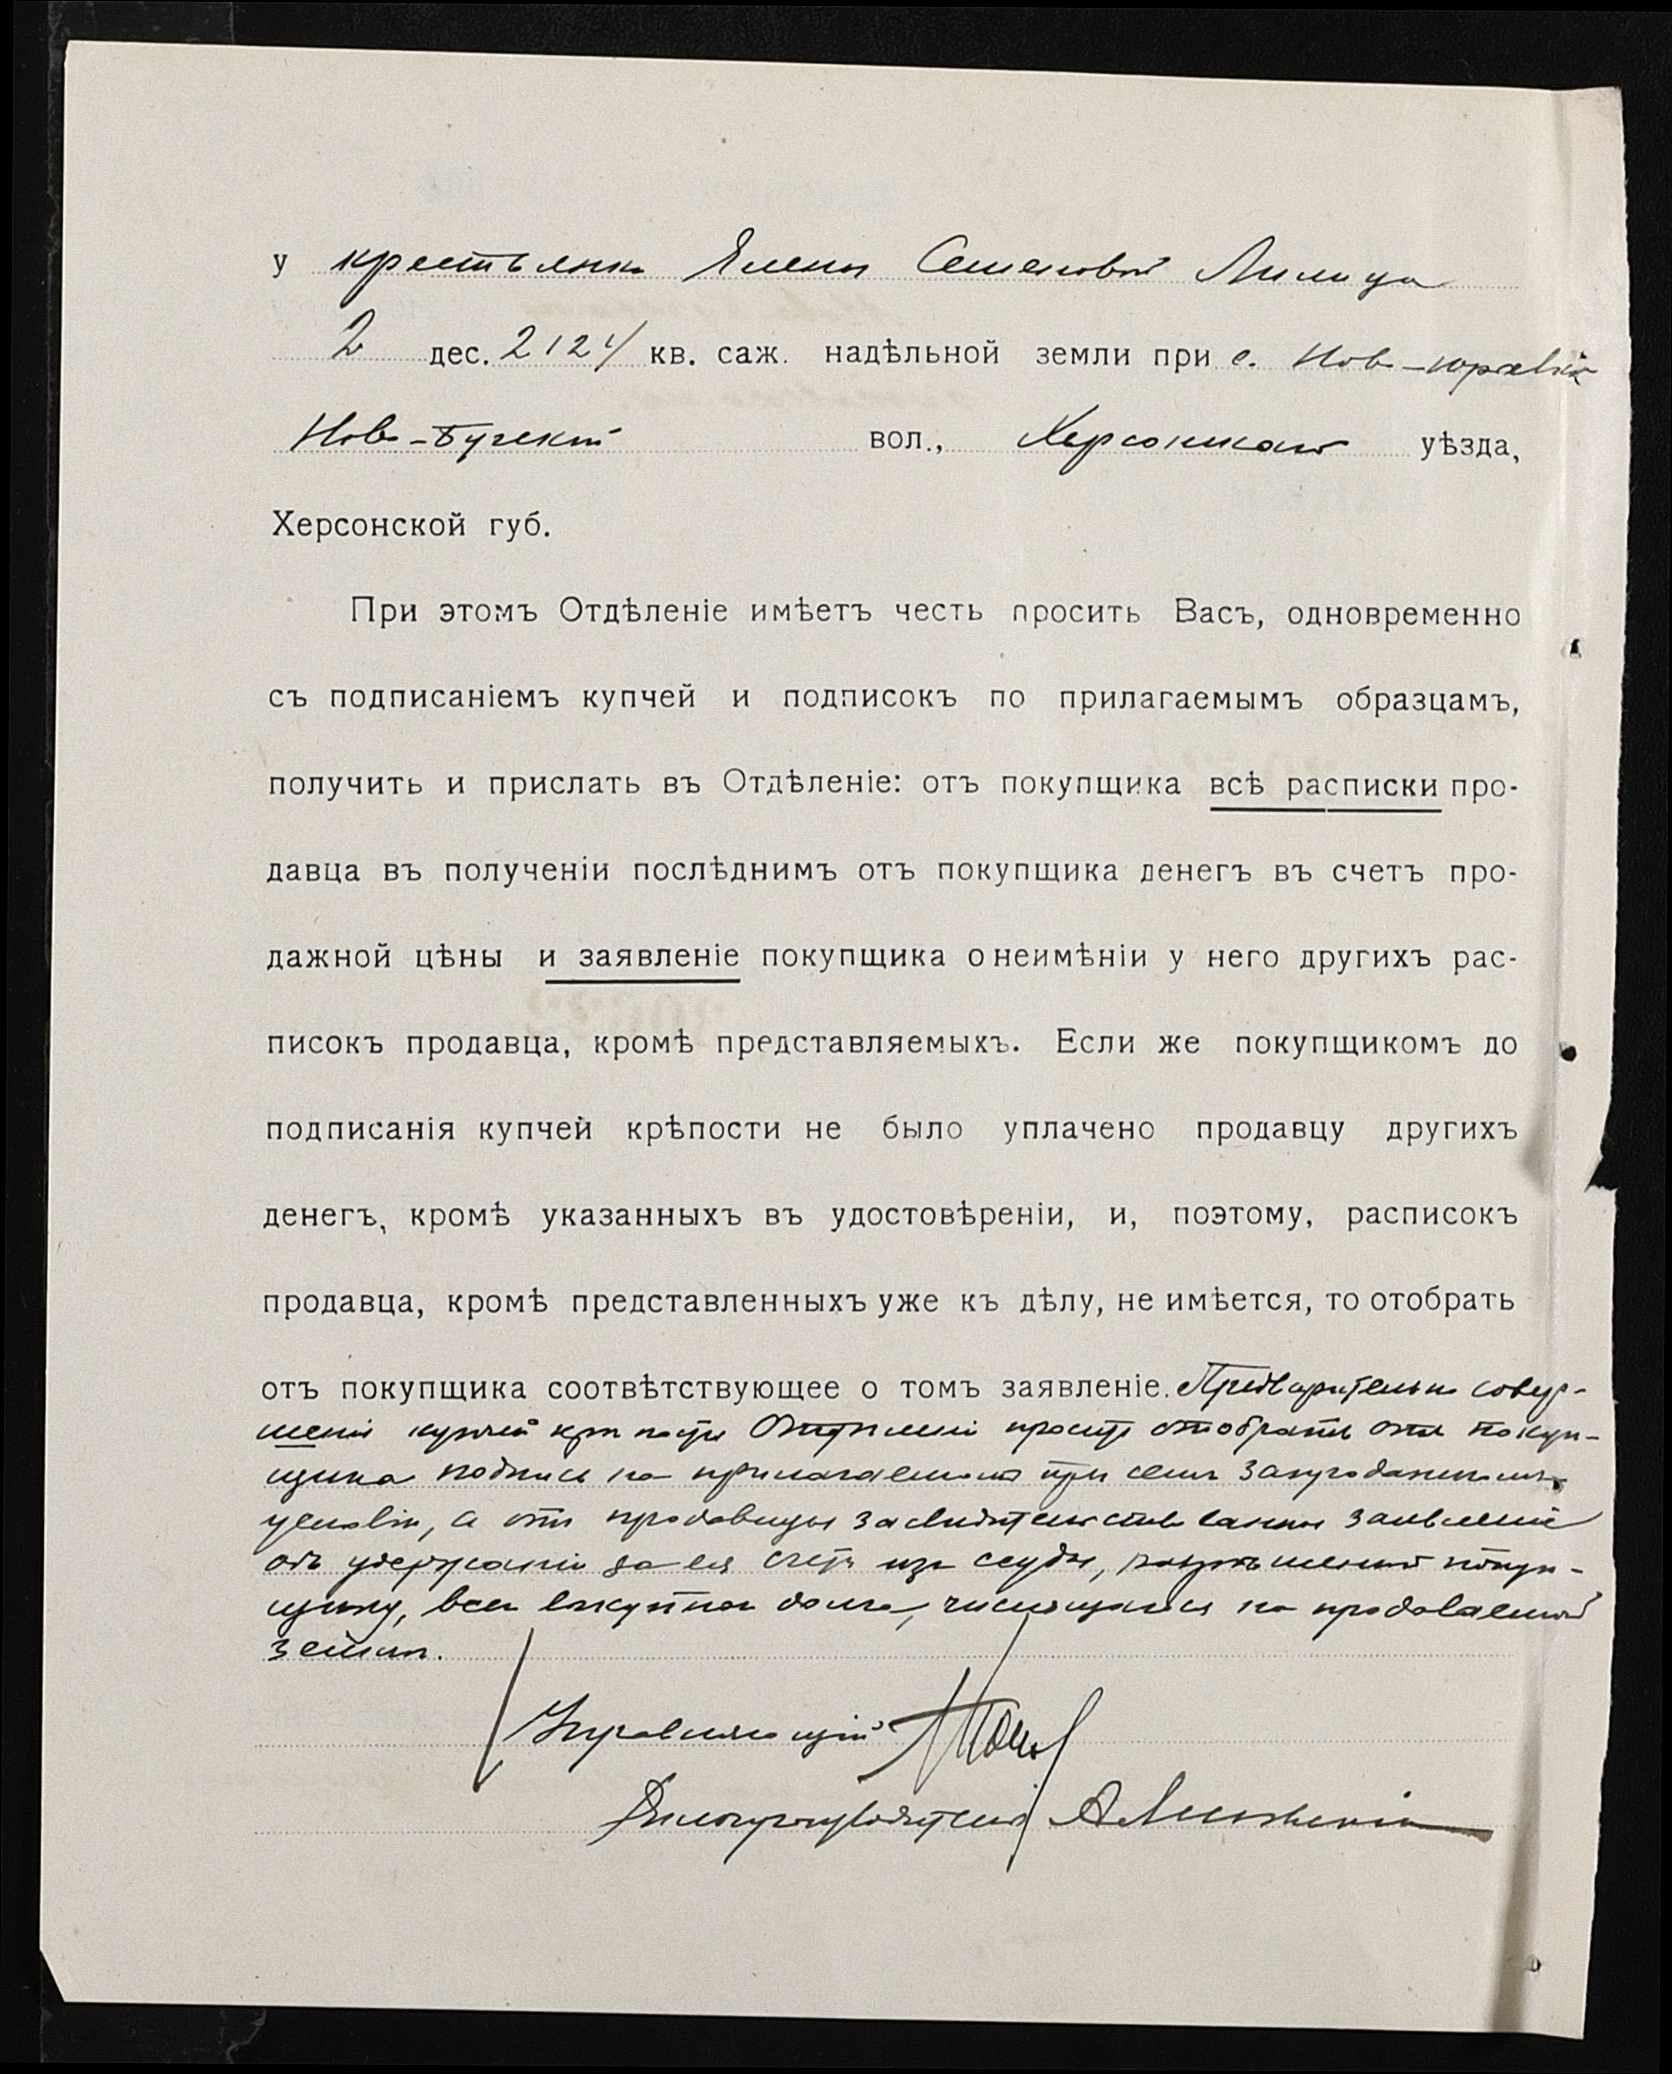 у крестьянки Елены Семеновой Липицы
2 дес. 2124 кв. саж. надѣльной земли при с. Ново-Юрьевкѣ
Ново-Бугской вол., Херсонскаго уѣзда,
Херсонской губ.
При этомъ Отдѣленіе имѣетъ честь просить Васъ, одновременно
съ подписаніемъ купчей и подписокъ по прилагаемымъ образцамъ,
получить и прислать въ Отдѣленіе: отъ покупщика всѣ расписки про-
давца въ полученіи послѣднимъ отъ покупщика денегъ въ счетъ про-
дажной цѣны и заявленіе покупщика о неимѣніи у него другихъ рас-
писокъ продавца, кромѣ представляемыхъ. Если же покупщикомъ до
подписанія купчей крѣпости не было уплачено продавцу другихъ
денегъ, кромѣ указанныхъ въ удостовѣреніи, и, поэтому, расписокъ
продавца, кромѣ представленныхъ уже къ дѣлу, не имѣется, то отобрать
отъ покупщика соотвѣтствующее о томъ заявленіе. Предварительно совер-
шенія купчей крѣпости Отдѣленіе проситъ отобрать отъ покуп-
щика подпись на прилагаемомъ при семъ запроданномъ
условіи, а отъ продавицы засвидѣтельствованное заявленіе
объ удержаніи за ея счетъ изъ ссуды, разрѣшенной покуп-
щику, всего выкупного долга, числящагося на продаваемой
землѣ.
Управляющій
Дѣлопроизводитель